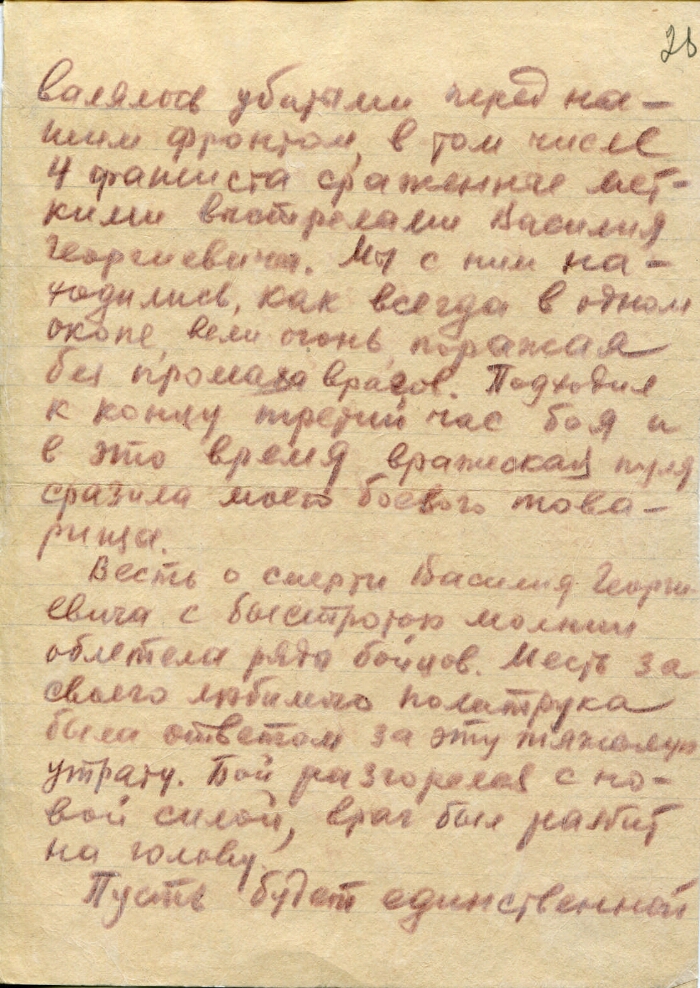 28
валялось убитыми перед на-
шим фронтом, в том числе
4 фашиста сраженные мет-
кими выстрелами Василия
Георгиевича. Мы с ним на-
ходились, как всегда в одном
окопе, вели огонь, поражая
без промаха врагов. Подходил
к концу третий час боя и
в это время вражеская пуля
сразила моего боевого това-
рища.
Весть о смерти Василия Георги
евича с быстротою молнии
облетела ряды бойцов. Месть за
своего любимого политрука
была ответом за эту тяжелую
утрату. Бой разгорелся с но-
вой силой, враг был разбит
на голову.
Пусть будет единственной